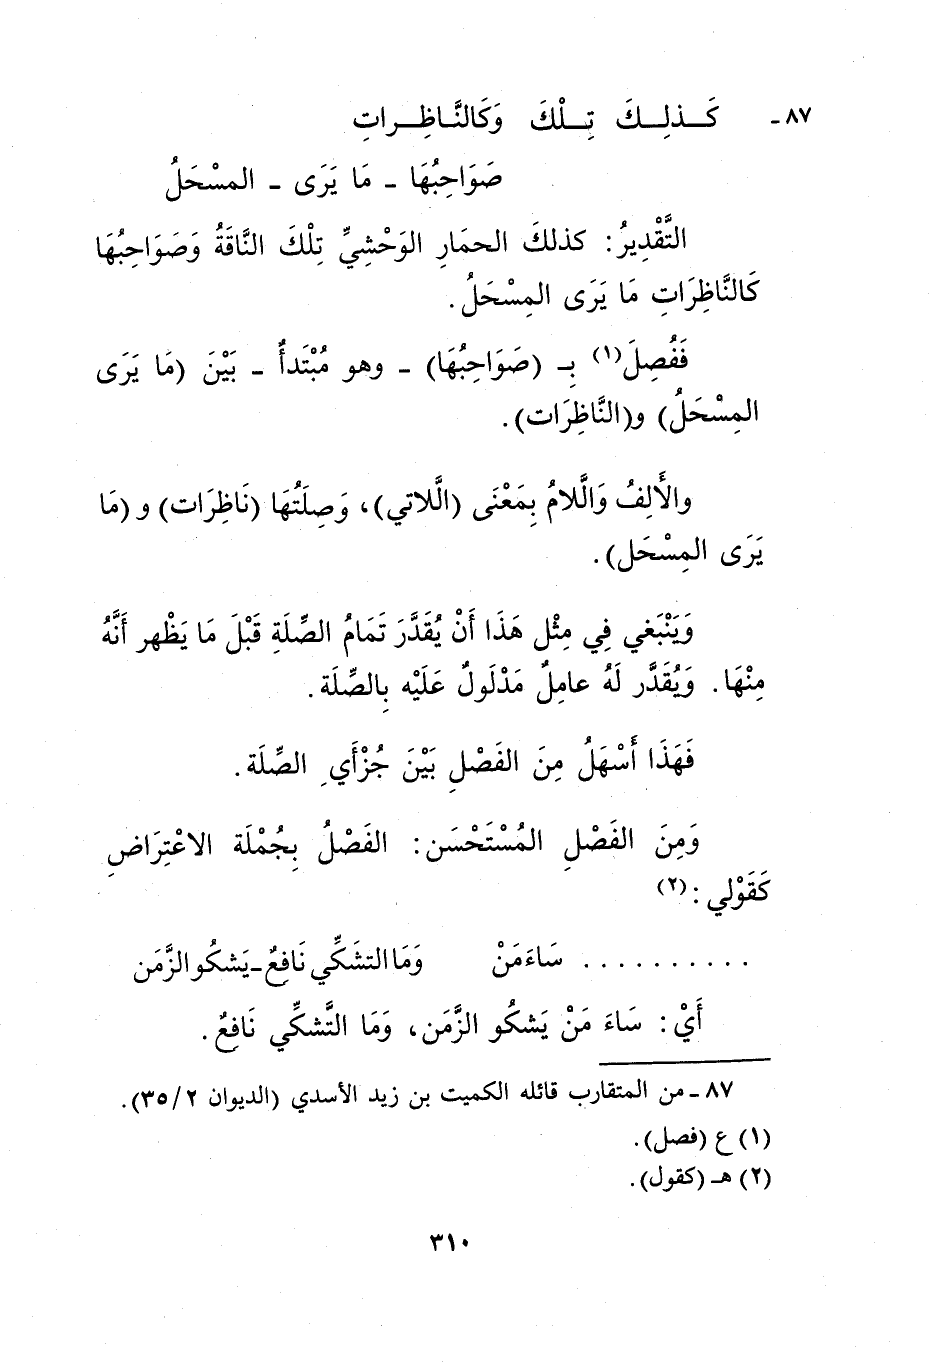 ٨٧- كَـذلِـكَ تِـلْكَ وَكَالنَّـاظِـراتِ
صَوَاحِبُهَا - مَا يَرَى - المسْحَلُ
التَّقْدِيرُ: كذلكَ الحمَارِ الوَحْشِيِّ تِلْكَ النَّاقَةُ وَصَوَاحِبُهَا
كَالنَّاظِرَاتِ مَا يَرَى المِسْحَلُ.
فَفُصِلَ(١) بِـ (صَوَاحِبُهَا) - وهو مُبْتَدأٌ - بَيْنَ (مَا يَرَى
المِسْحَلُ) و(النَّاظِرَات).
والأَلِفُ وَالَّلامُ بِمَعْنَى (الَّلاتي)، وَصِلَتُهَا (نَاظِرَات) و (مَا
يَرَى المِسْحَل).
وَيَنْبَغي فِي مِثْل هَذَا أَنْ يُقَدَّرَ تَمَامُ الصِّلَةِ قَبْلَ مَا يَظْهر أَنَّهُ
مِنْهَا. وَيُقَدَّر لَهُ عامِلٌ مَدْلُولٌ عَلَيْه بِالصِّلَة.
فَهَذَا أَسْهَلُ مِنَ الفَصْلِ بَيْنَ جُزْأَيِ الصِّلَة.
وَمِنَ الفَصْلِ المُسْتَحْسَن: الفَصْلُ بِجُمْلَة الاعْتِرَاضِ
كَقَوْلي:(٢)
.......... سَاءَ مَنْ وَمَا التشَكِّي نَافِعٌ-يَشكُو الزَّمَن
أَيْ: سَاءَ مَنْ يَشكُو الزَّمَن، وَمَا التَّشكِّي نَافِعٌ.
٨٧ - من المتقارب قائله الكميت بن زيد الأسدي (الديوان ٢/ ٣٥).
(١) ع (فصل).
(٢) هـ (كقول).
٣١٠